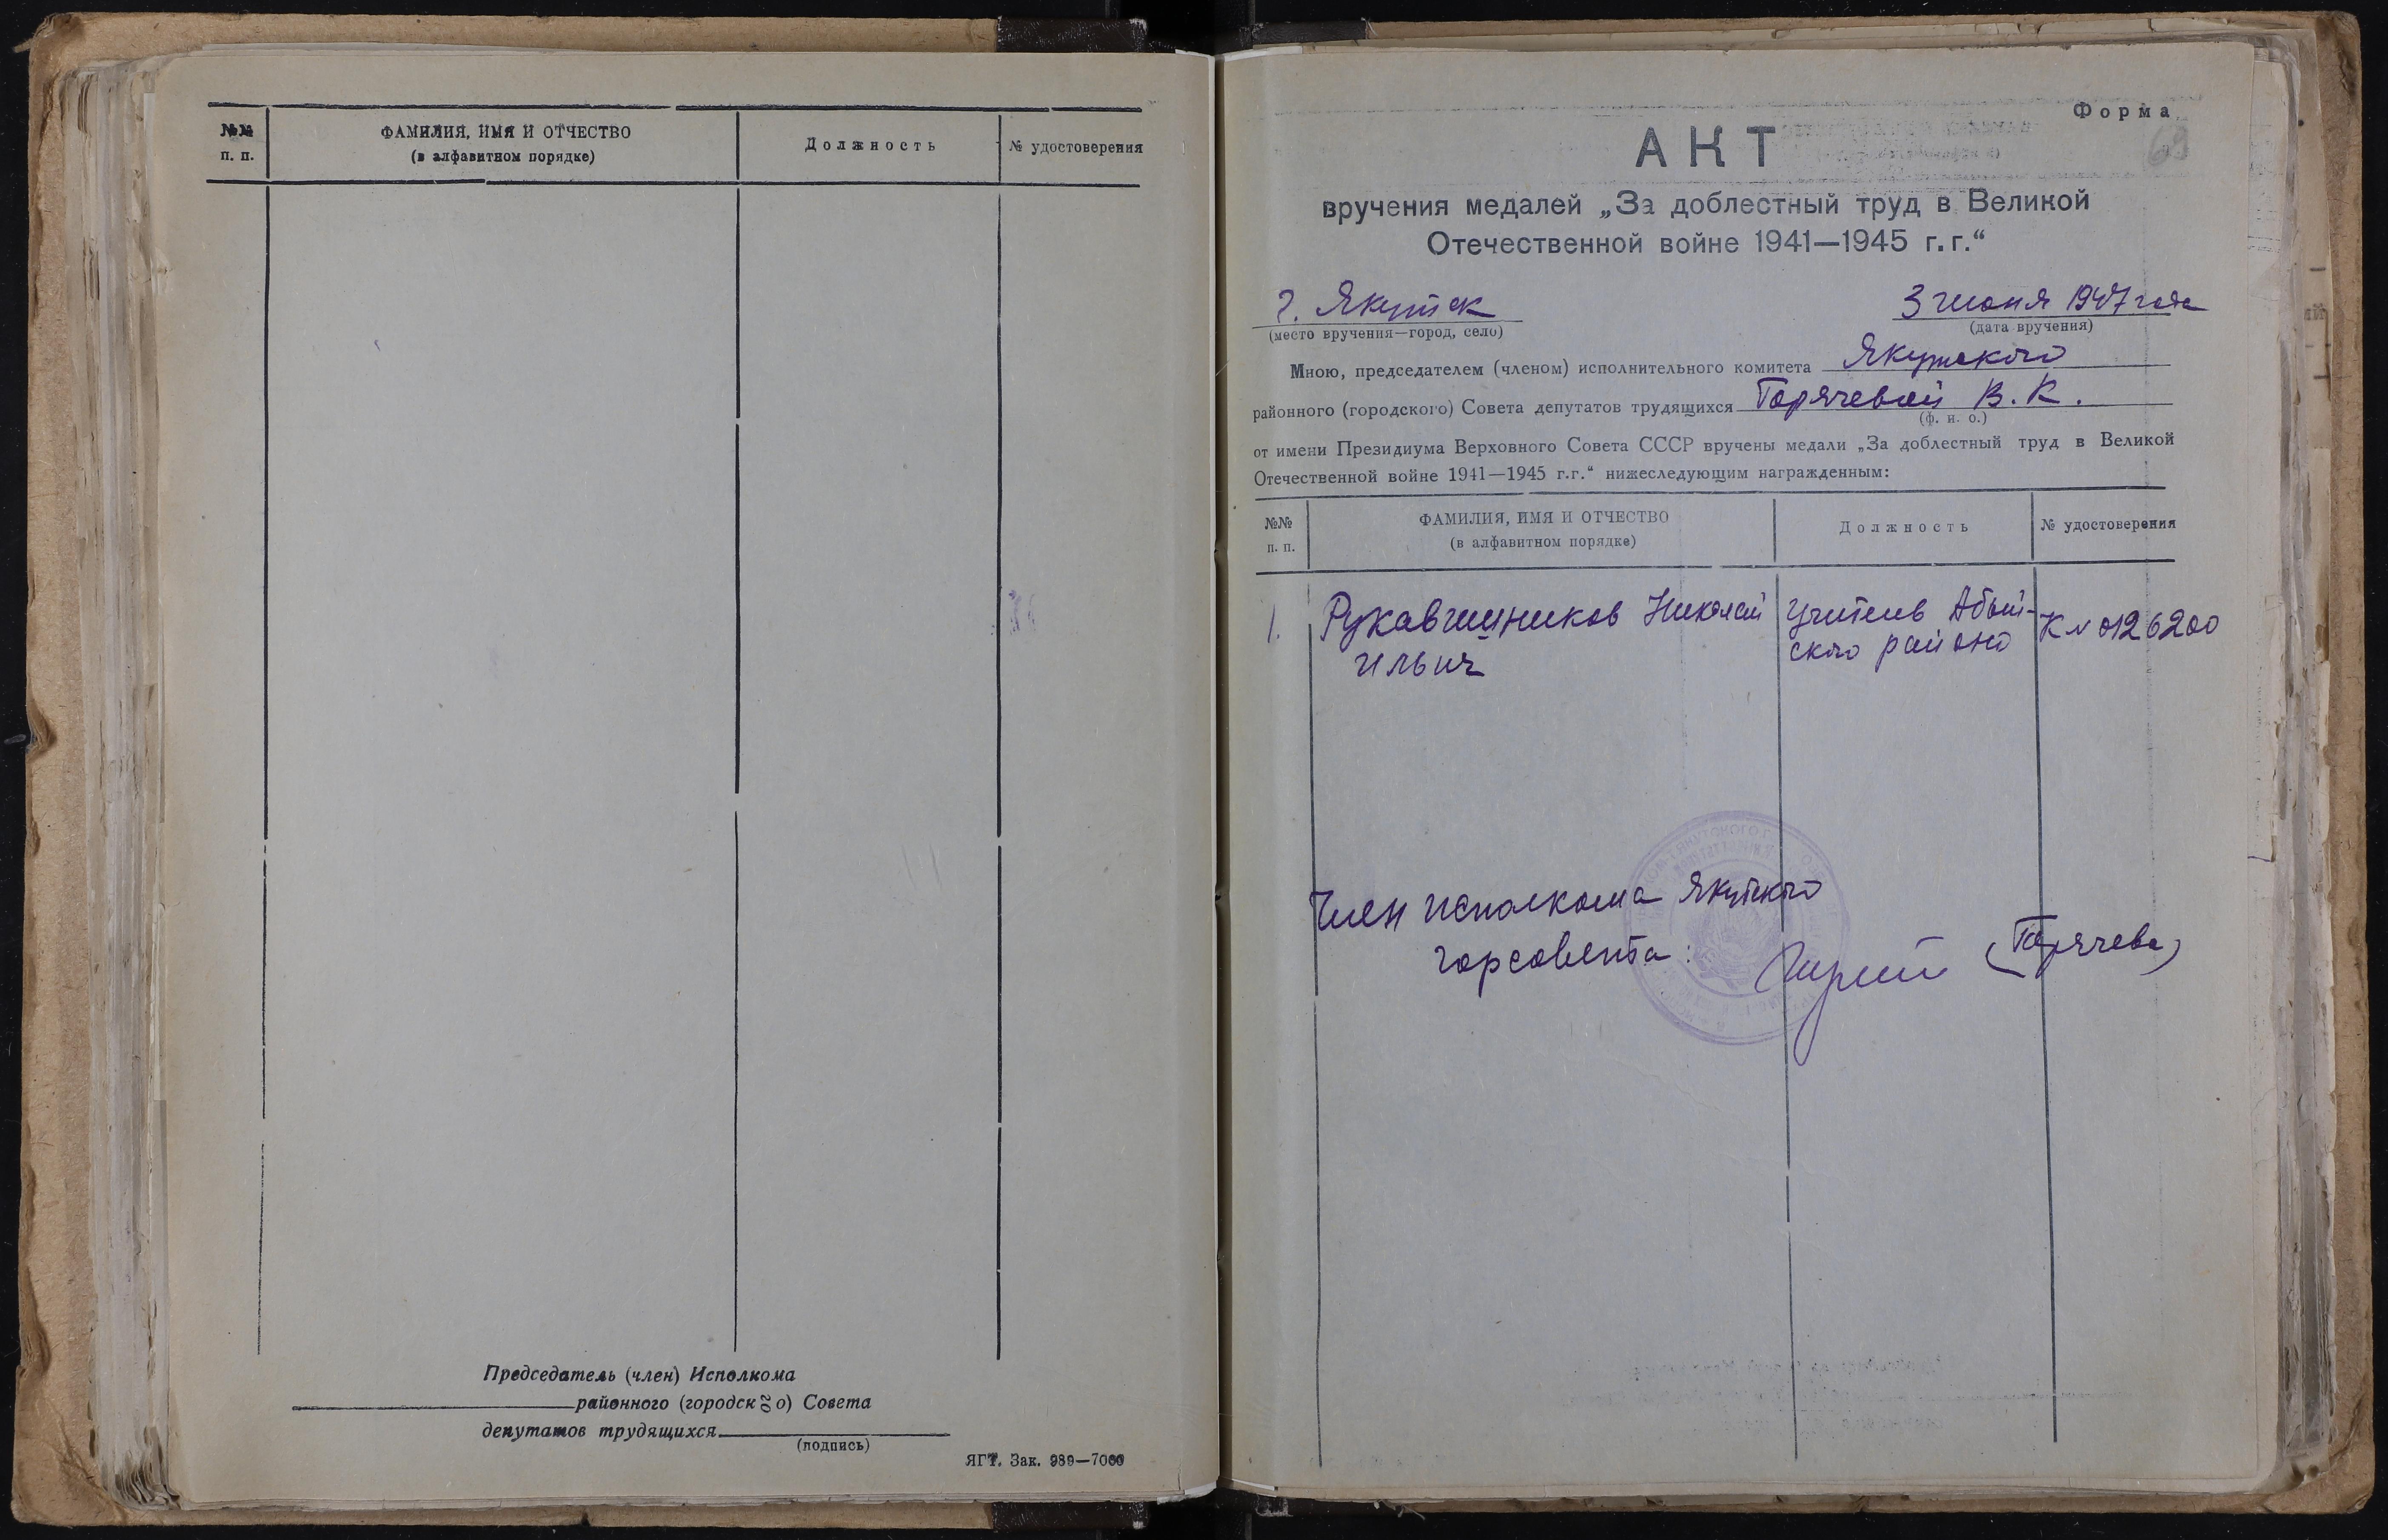 №№
п. п.
ФАМИЛИЯ, ИМЯ И ОТЧЕСТВО
(в алфавитном порядке)
Должность
№ удостоверения
Председатель (член) Исполкома
районного (городского) Совета
депутатов трудящихся
(подпись)
ЯГТ. Зак. 989—7000
Форма
69
АКТ
вручения медалей „За доблестный труд в Великой
Отечественной войне 1941—1945 г.г.“
г. Якутск
3 июня 1947 года
(место вручения—город, село)
(дата вручения)
Мною, председателем (членом) исполнительного комитета Якутского
районного (городского) Совета депутатов трудящихся Горячевой В. К.
(ф. и. о.)
от имени Президиума Верховного Совета СССР вручены медали „За доблестный труд в Великой
Отечественной войне 1941—1945 г.г.“ нижеследующим награжденным:
№№
п. п.
ФАМИЛИЯ, ИМЯ И ОТЧЕСТВО
(в алфавитном порядке)
Должность
№ удостоверения
1. Рукавишников Николай учитель Абый- К № 0126200
Ильич ского района
Член исполкома Якутского
горсовета: (Горячева)